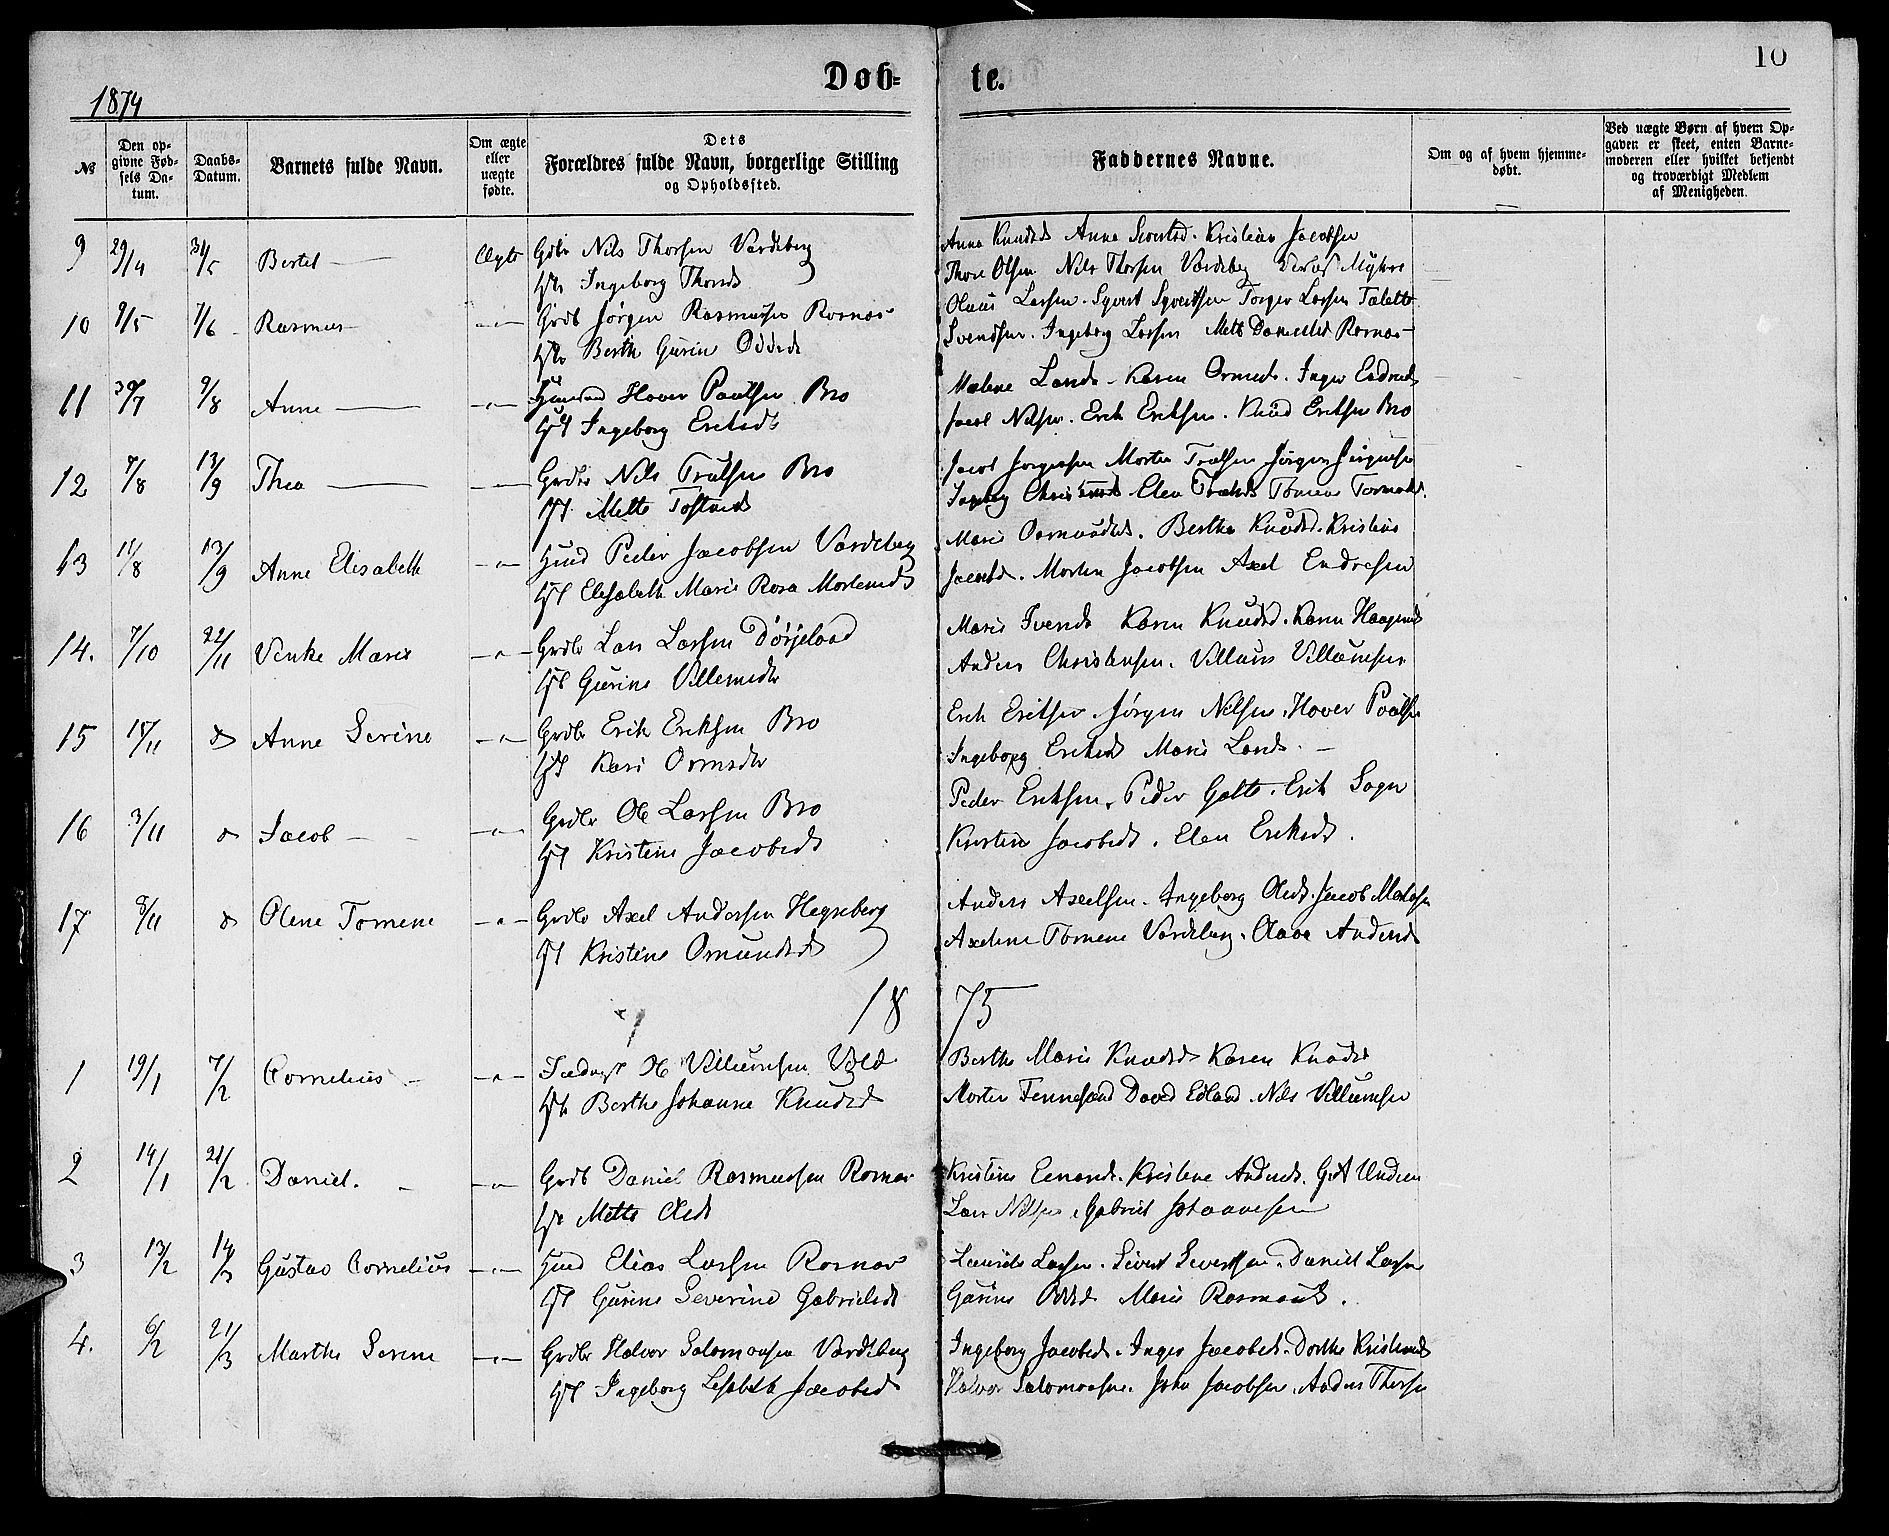 10
Döb- te.
1874
№
Den op-
givne Fød-
sels Da-
tum.
Daabs-
Datum.
Barnets fulde Navn.
Om ægte
eller
uægte
fødte.
Dets
Forældres fulde Navn, borgerlige Stilling
og Opholdssted.
Faddernes Navne.
Om og af hvem hjemme-
døbt.
Ved uægte Børn af hvem Op-
gaven er skeet, enten Barne-
moderen eller hvilket bekjendt
og troværdigt Medlem
af Menigheden.
9 29/4 31/5 Bertel Ægte Gdbr Nils Thorsen Vardeberg
Ingeborg Thorsd
Anna Knudsd Anna Sivertsd. Kristian Jacobsen
Thore Olsen Nils Thorsen Vardeberg
10 9/5 7/6 Rasmus Grdb Jørgen Rasmussen Rosnæs
Berth Gurin Oddsd
Olaus Larsen. Syvert Syvertsen Torger Larsen Talette
Svendsen. Ingeborg Larsen Mette Danielsd Rosnæs
11 30/7 9/8 Anne Huusmd Hover Paulsen Bro
Ingeborg Eriksdt
Malene Larsd. Karen Ormsd. Inger Endresd
Jacob Nilsen. Erik Eriksen. Knud Eriksen Bro
12 7/8 13/9 Thea Grdbr Nils Trulsen Bro
Mette Tostensd
Jacob Jørgensen Morten Trulsen Jørgen Jørgensen
Ingeborg Elen Tomine
13 11/8 13/9 Anne Elisabeth Huusd Peder Jacobsen Vardeberg
Elisabeth Marie Rosa Mortensd
Marie Osmundsd. Berthe Knudsd. Kristine
Jacobsd. Morten Jacobsen Axel Endresen
14. 7/10 22/11 Venke Marie Grdbr Lars Larsen Dørjeland
Gurine Villumsdtr
Marie Svendsd Karen Knudsd. Karen Haagensd
Anders Christensen. Villum Villumsen
15 15/11 Anne Serine Grdbr Erik Eriksen Bro
Kari Ormsdtr
Erik Eriksen. Jørgen Nilsen. Hover Paulsen
Ingeborg Eriksd Marie Larsd.
16 3/11 Jacob Grdbr Ole Larsen Bro
Kristine Jacobsd
Peder Eriksen. Peder Galte. Erik Sogn
Kirsten Jacobsd. Elen Eriksd.
17 8/11 Olene Tomene Grdbr Axel Andersen Hegreberg
Kristine Omundsd
Anders Axelsen. Ingeborg Olsd. Jacob
Axeline Tomene Vardeberg. Olava Andersd
18 75
1 19/1 7/2 Cornelius Ole Villumsen Vold
Berthe Johanne Knudsd
Berthe Marie Knudsd Karen Knudsd
Morten Fennesand David Edland Nils Villumsen
2 14/1 21/2 Daniel. Grdb Daniel Rasmussen Rosnæs
Mette Olsd
Kristine Kristine Andersd.
Lars Nilsen. Gabriel Johannesen
3 13/2 14/3 Gustav Cornelius Huusd Elias Larsen Rosnæs
Gurine Severine Gabrielsd
Laurits Larsen. Sivert Sivertsen. Daniel Larsen
Gurine Oddsd Marie Rasmusd.
4. 6/2 21/3 Marthe Serine Grdbr Halvor Salomonsen Vardeberg
Ingeborg Lisabeth Jacobsd
Ingeborg Jacobsd. Inger Jacobsd. Dorthe Kristensd
Halvor Salomonsen. John Jacobsen. Anders Thorsen